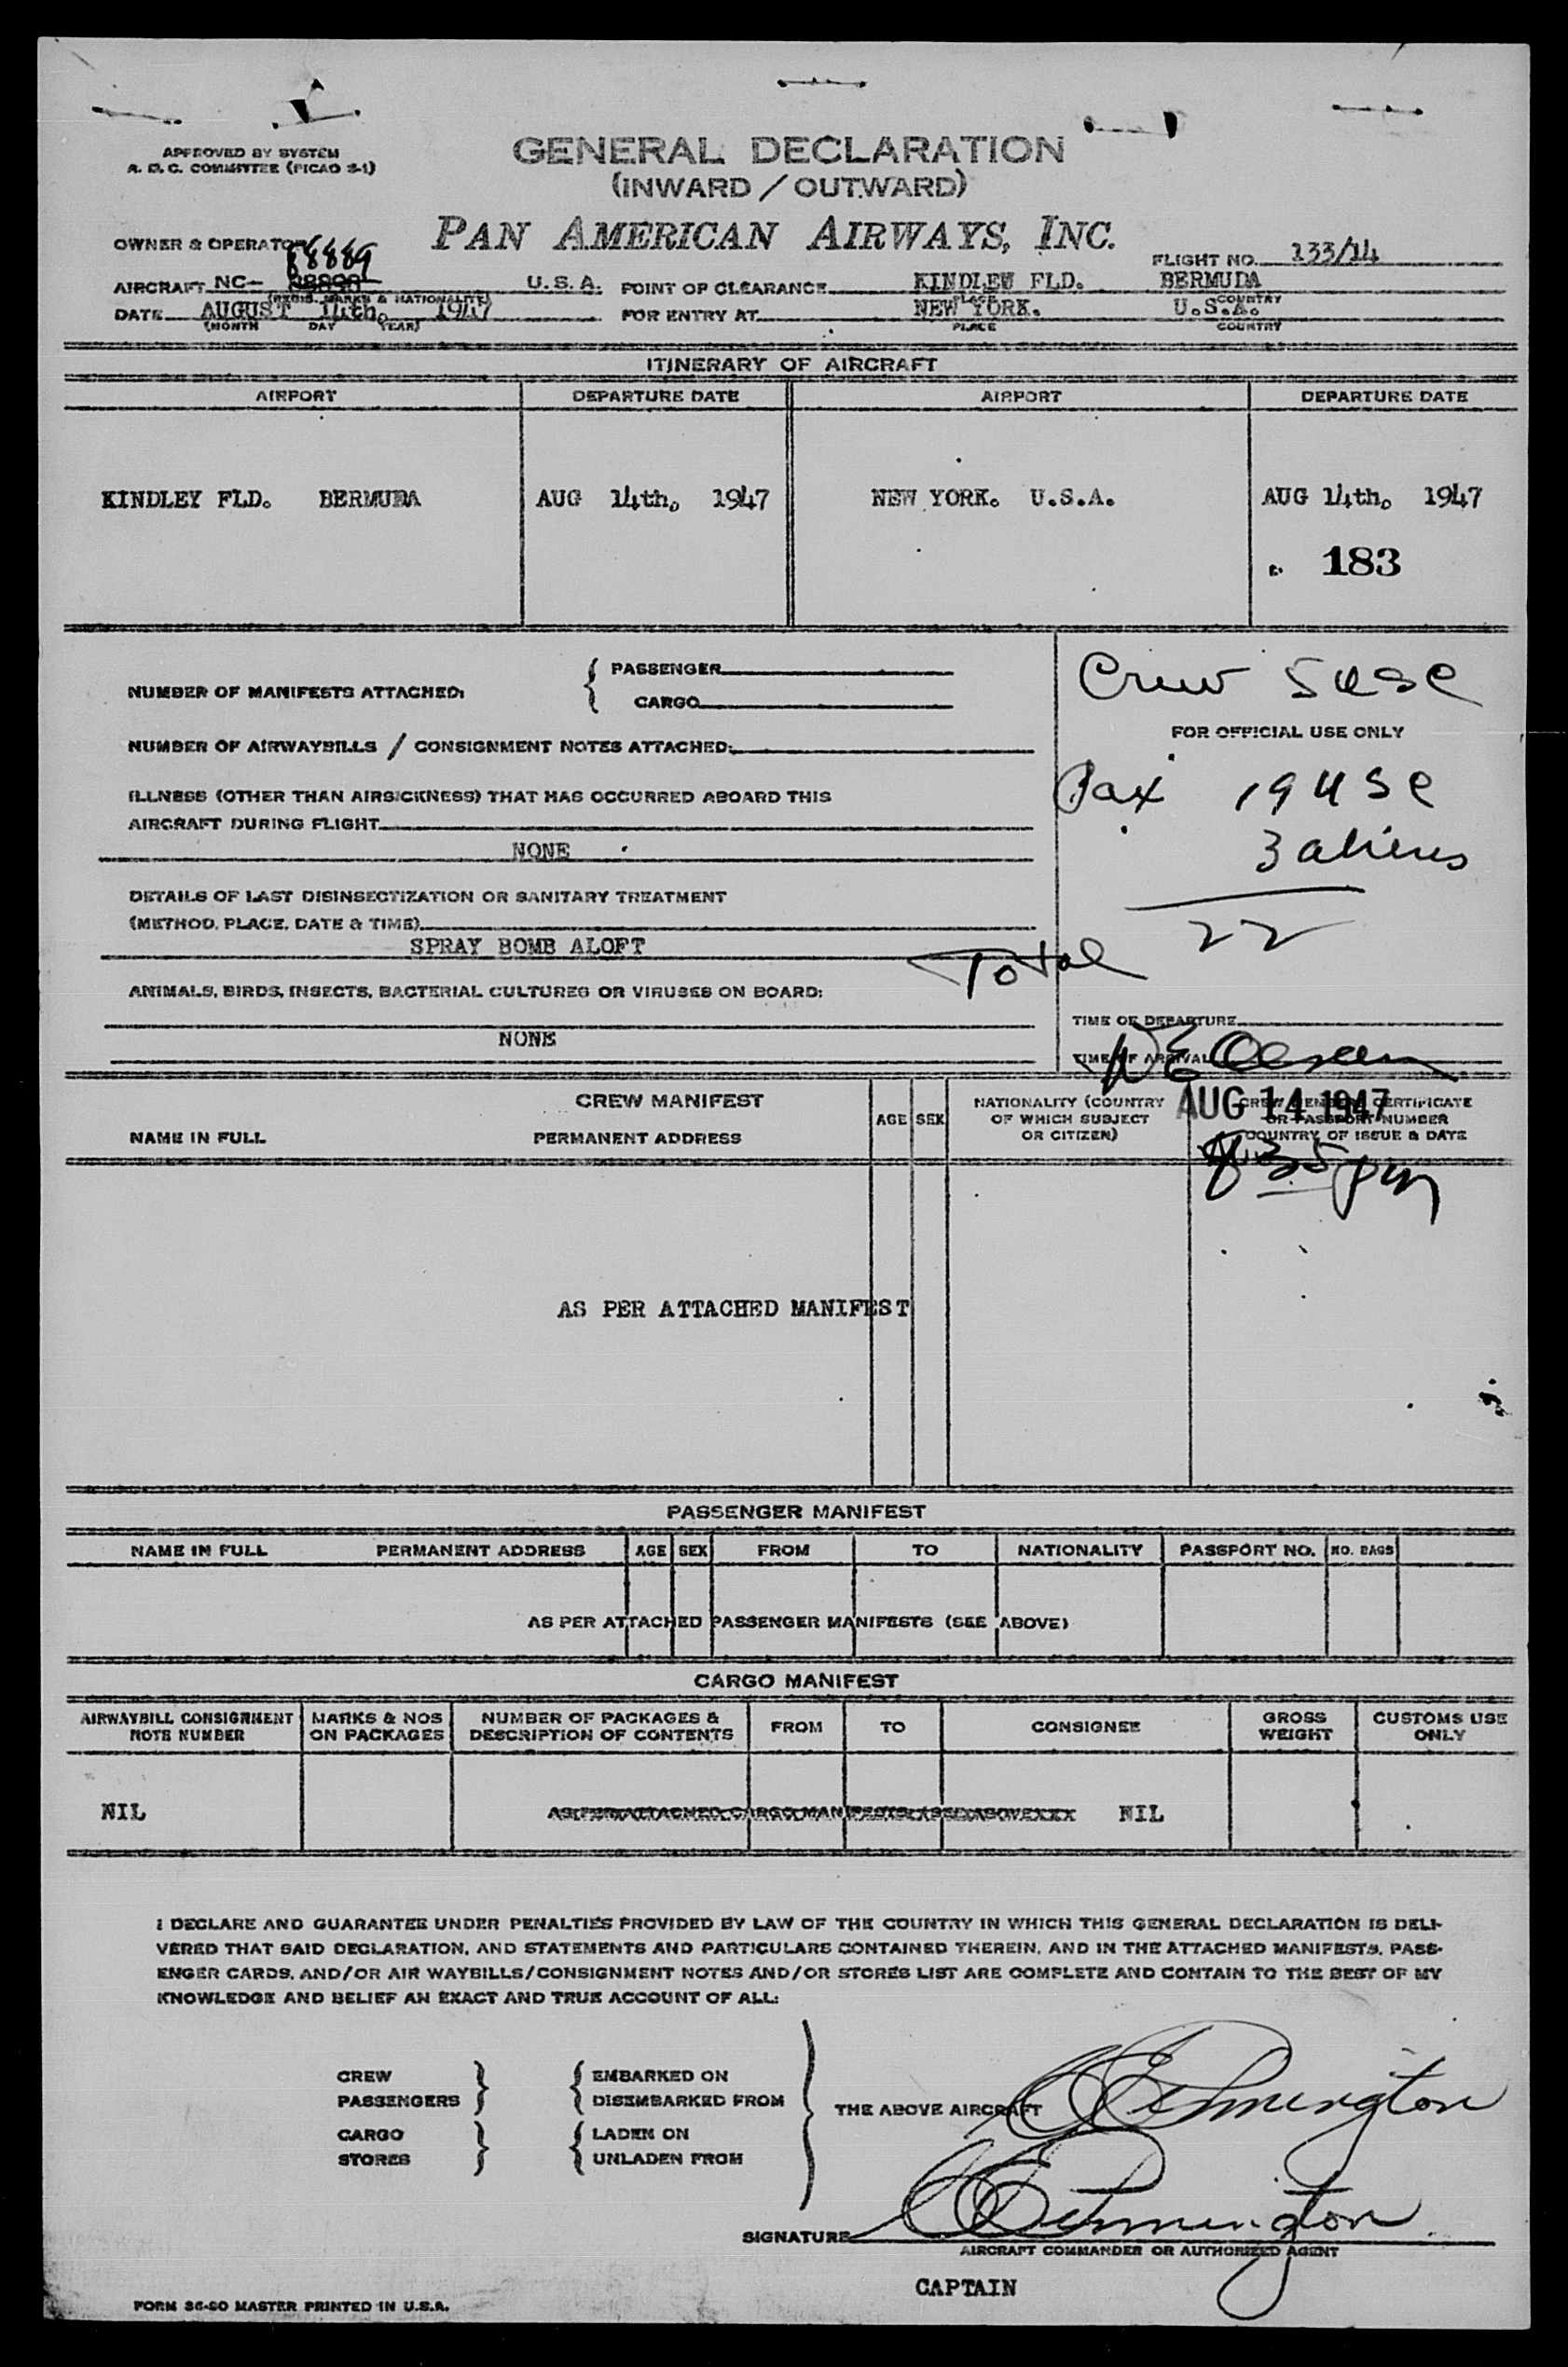 APPROVED BY SYSTEM
A. D. C. COMMITTEE (PICAO 2-1)
GENERAL DECLARATION
(INWARD / OUTWARD)
OWNER & OPERATOR PAN AMERICAN AIRWAYS, INC.
88889
FLIGHT NO. 133/14
AIRCRAFT NC- U.S.A. POINT OF CLEARANCE KINDLEW FLD. BERMUDA
(REGIS. MARKS & NATIONALITY) PLACE COUNTRY
DATE AUGUST 14th, 1947 FOR ENTRY AT NEW YORK. U.S.A.
(MONTH DAY YEAR) PLACE COUNTRY
ITINERARY OF AIRCRAFT
AIRPORT DEPARTURE DATE AIRPORT DEPARTURE DATE
KINDLEY FLD. BERMUDA AUG 14th, 1947 NEW YORK. U.S.A. AUG 14th, 1947
183
NUMBER OF MANIFESTS ATTACHED: { PASSENGER
CARGO
Crew 5 USC
FOR OFFICIAL USE ONLY
NUMBER OF AIRWAYBILLS / CONSIGNMENT NOTES ATTACHED:
Pax 19 USC
3 aliens
22
Total
ILLNESS (OTHER THAN AIRSICKNESS) THAT HAS OCCURRED ABOARD THIS
AIRCRAFT DURING FLIGHT
NONE
DETAILS OF LAST DISINSECTIZATION OR SANITARY TREATMENT
(METHOD, PLACE, DATE & TIME)
SPRAY BOMB ALOFT
ANIMALS, BIRDS, INSECTS, BACTERIAL CULTURES OR VIRUSES ON BOARD:
NONE
TIME OF DEPARTURE
TIME OF ARRIVAL
AUG 14 1947
CREW MANIFEST
NAME IN FULL PERMANENT ADDRESS AGE SEX NATIONALITY (COUNTRY
OF WHICH SUBJECT
OR CITIZEN)
CREW MEMBER CERTIFICATE
OR PASSPORT NUMBER
COUNTRY OF ISSUE & DATE
35 pm
AS PER ATTACHED MANIFEST
PASSENGER MANIFEST
NAME IN FULL PERMANENT ADDRESS AGE SEX FROM TO NATIONALITY PASSPORT NO. NO. BAGS
AS PER ATTACHED PASSENGER MANIFESTS (SEE ABOVE)
CARGO MANIFEST
AIRWAYBILL CONSIGNMENT
NOTE NUMBER
MARKS & NOS
ON PACKAGES
NUMBER OF PACKAGES &
DESCRIPTION OF CONTENTS
FROM TO CONSIGNEE
GROSS
WEIGHT
CUSTOMS USE
ONLY
NIL AS PER ATTACHED CARGO MANIFESTS (SEE ABOVE) NIL
I DECLARE AND GUARANTEE UNDER PENALTIES PROVIDED BY LAW OF THE COUNTRY IN WHICH THIS GENERAL DECLARATION IS DELI-
VERED THAT SAID DECLARATION, AND STATEMENTS AND PARTICULARS CONTAINED THEREIN, AND IN THE ATTACHED MANIFESTS, PASS-
ENGER CARDS, AND/OR AIR WAYBILLS/CONSIGNMENT NOTES AND/OR STORES LIST ARE COMPLETE AND CONTAIN TO THE BEST OF MY
KNOWLEDGE AND BELIEF AN EXACT AND TRUE ACCOUNT OF ALL:
CREW EMBARKED ON
PASSENGERS DISEMBARKED FROM
THE ABOVE AIRCRAFT
CARGO LADEN ON
STORES UNLADEN FROM
SIGNATURE
AIRCRAFT COMMANDER OR AUTHORIZED AGENT
CAPTAIN
FORM 36-20 MASTER PRINTED IN U.S.A.